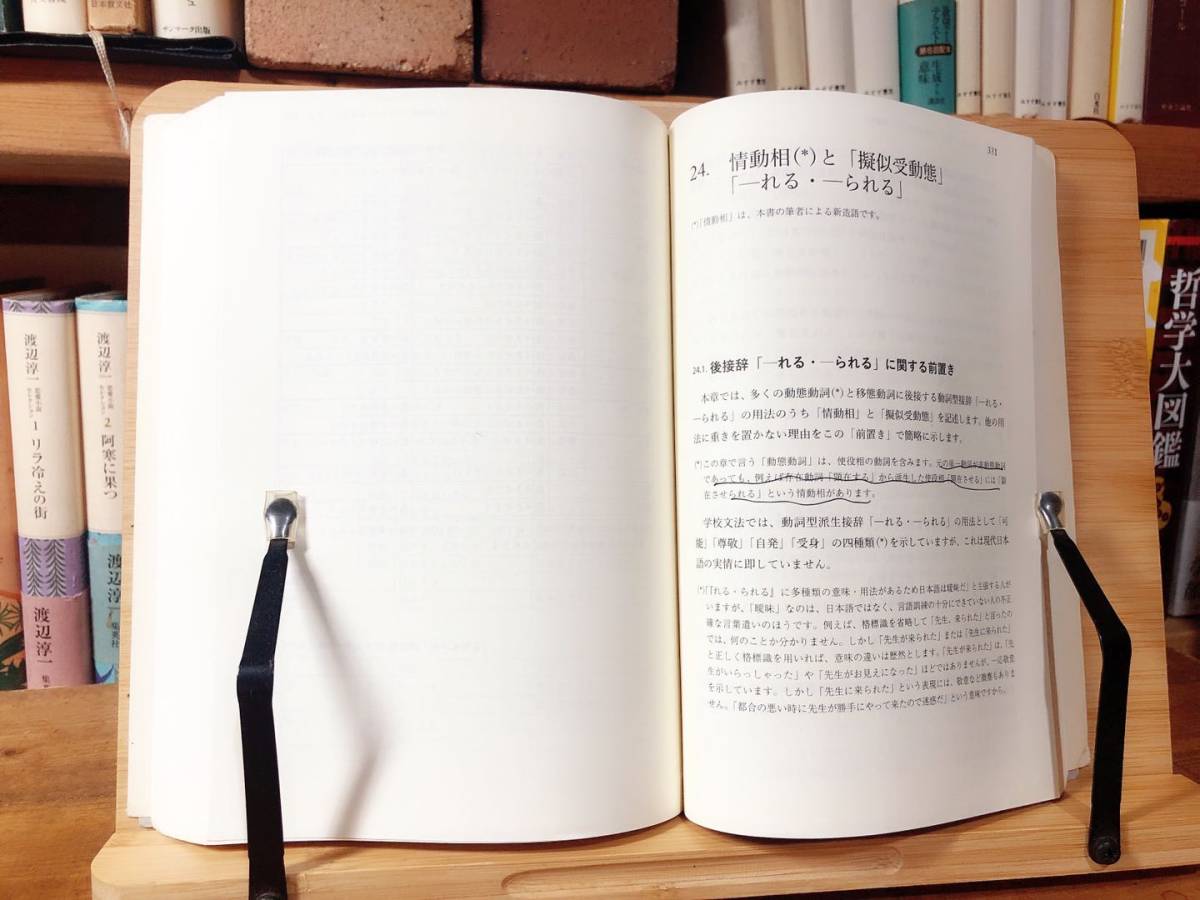 日本教文社
サンマーク出版
みすず書房
生成と
意味
講談社
白水社
みすず書房
渡辺淳一
1 リラ冷えの街
渡辺淳一
集
渡辺淳一
2 阿寒に果つ
渡辺淳
集英社
331
24. 情動相(*)と「擬似受動態」
「—れる・—られる」
(*)「情動相」は、本書の筆者による新造語です。
24.1. 後接辞「—れる・—られる」に関する前置き
本章では、多くの動態動詞(*)と移態動詞に後接する動詞型接辞「—れる・
—られる」の用法のうち「情動相」と「擬似受動態」を記述します。他の用
法に重きを置かない理由をこの「前置き」で簡略に示します。
(*)この章で言う「動態動詞」は、使役相の動詞を含みます。元の第一動詞が非動態動詞
であっても、例えば存在動詞「顕在する」から派生した使役相「顕在させる」には「顕
在させられる」という情動相があります。
学校文法では、動詞型派生接辞「—れる・—られる」の用法として「可
能」「尊敬」「自発」「受身」の四種類(*)を示していますが、これは現代日本
語の実情に即していません。
(*)「『れる・られる』に多種類の意味・用法があるため日本語は曖昧だ」と主張する人が
いますが、「曖昧」なのは、日本語ではなく、言語訓練の十分にできていない人の不正
確な言葉遣いのほうです。例えば、格標識を省略して「先生、来られた」と言ったの
では、何のことか分かりません。しかし「先生が来られた」または「先生に来られた」
と正しく格標識を用いれば、意味の違いは歴然とします。「先生が来られた」は、「先
生がいらっしゃった」や「先生がお見えになった」ほどではありませんが、一応敬意
を示しています。しかし「先生に来られた」という表現には、敬意など微塵もありま
せん。「都合の悪い時に先生が勝手にやって来たので迷惑だ」という意味ですから。
哲学大図鑑